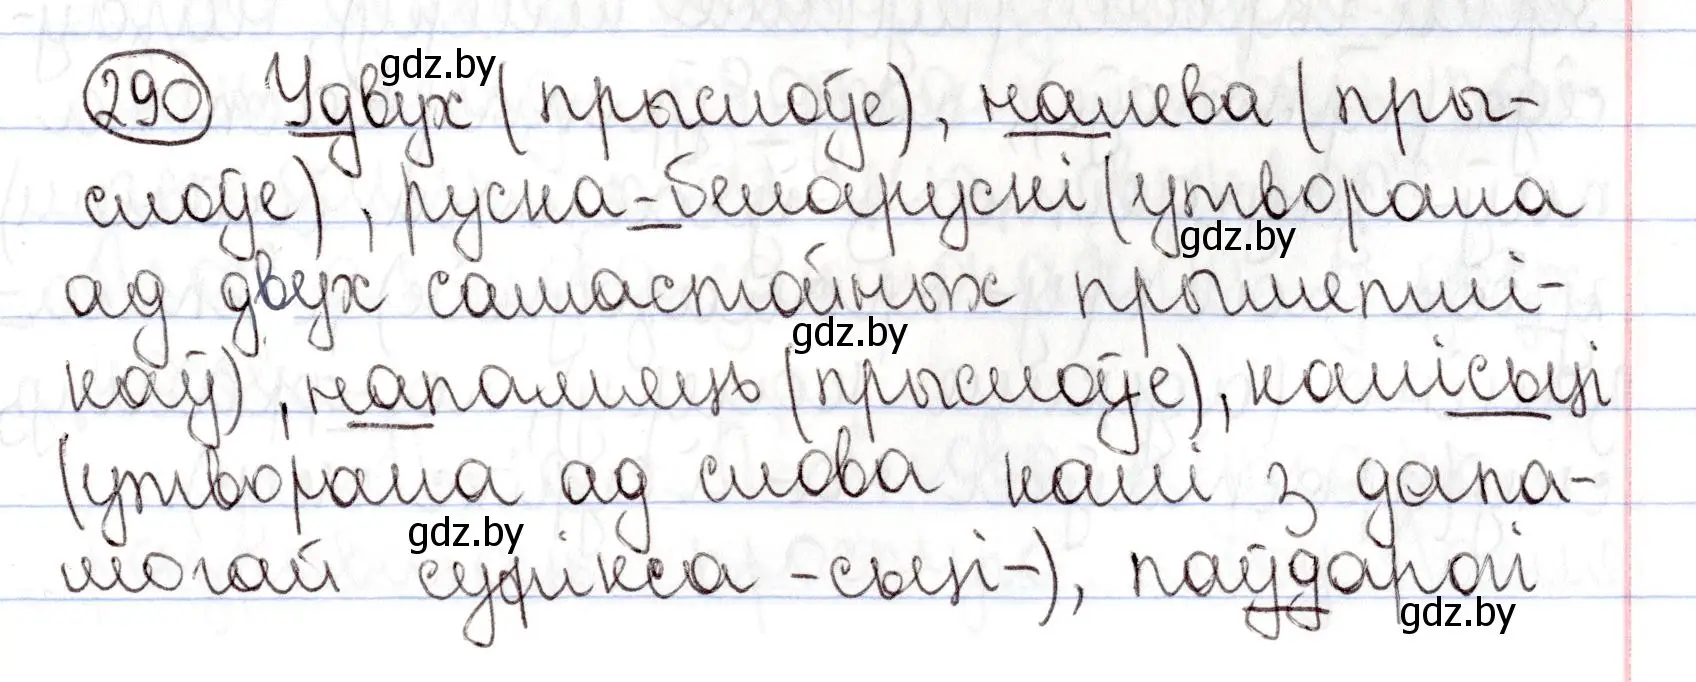 290 Удвух (прыслоўе), налева (пры-
слоўе), руска-беларускі (утворана
ад двух самастойных прыметні-
каў), напамяць (прыслоўе), калісьці
(утворана ад слова калі з дапа-
могай суфікса -сьці-), паўдарогі
gdz.by
gdz.by
gdz.by
gdz.by
gdz.by